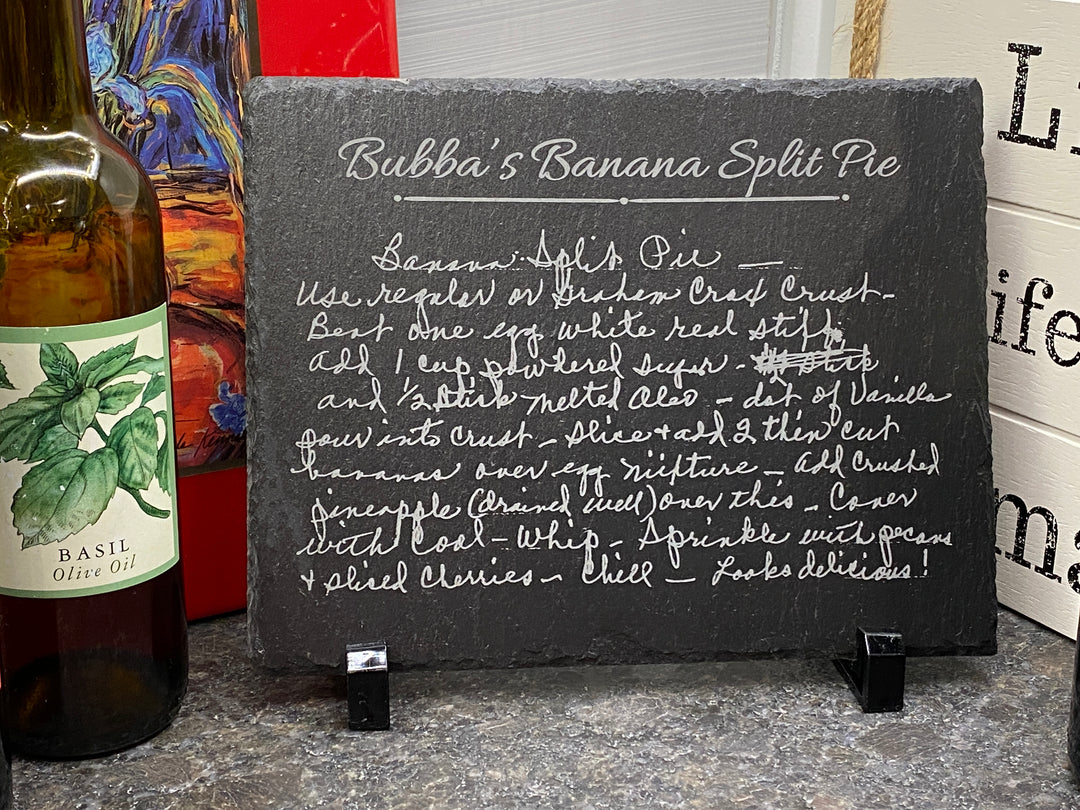 Bubba's Banana Split Pie
Banana Split Pie —
Use regular or Graham Crax Crust -
Beat one egg white real stiff
add 1 cup powdered sugar -
and 1/2 stick melted oleo - dot of Vanilla
pour into crust - Slice + add 2 thin cut
bananas over egg mixture - add crushed
pineapple (drained well) over this - Cover
with Cool - Whip - Sprinkle with pecans
+ sliced Cherries - Chill - Looks delicious!
BASIL
Olive Oil
L
ife
ma